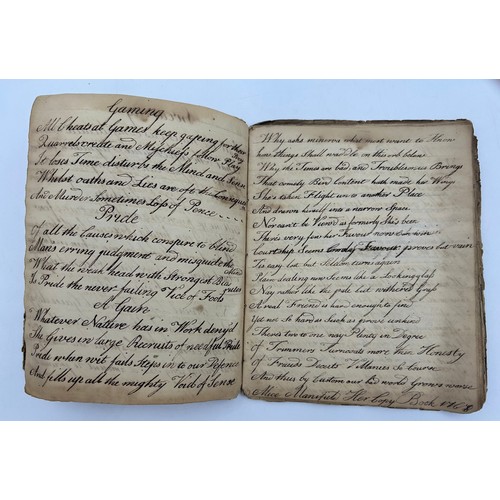 Gaming
All Cheats at Games keep gaping for their Prey
Quarrels create and Mischiefs follow Play
It loses Time disturbs the Mind and Sense
Whilst oaths and Lies are oft the Consequence
And Murder Sometimes Loss of Pence
Pride
Of all the Causes which conspire to blind
Mans erring judgment and misguide the Mind
What the weak head with Strongest Bias rules
Is Pride the never failing Vice of Fools
A Gain
Whatever Nature has in Worth denyd
She Gives in large Recruits of needful Pride
Pride when wit fails Steps in to our Defence
And fills up all the mighty Void of Sense
Why asks
what most want to Know
how things Shall
on this orb below
Why the Times are bad and Troublesome Beings
That comely Bird Content hath made her Wings
She's taken Flight unto another Place
And drawn himself into a narrow Span
Nor can't be View'd as formerly She's been
There's very few her Favour now can win
Courtship Seems
Favour proves but vain
Tis easy lost but Seldom turns again
Plain dealing now Seems like a Looking glass
Nay rather like the pale but withered Grass
A real Friend is hard enough to find
Yet not So hard as Such as prove unkind
There's two to one nay Plenty in Degree
Of Trimmers Turncoats more than Honesty
Of Frauds Deceits Villanies So
And thus by Custom our bad world Grows worse
Alice Mansfield Her Copy Book 176